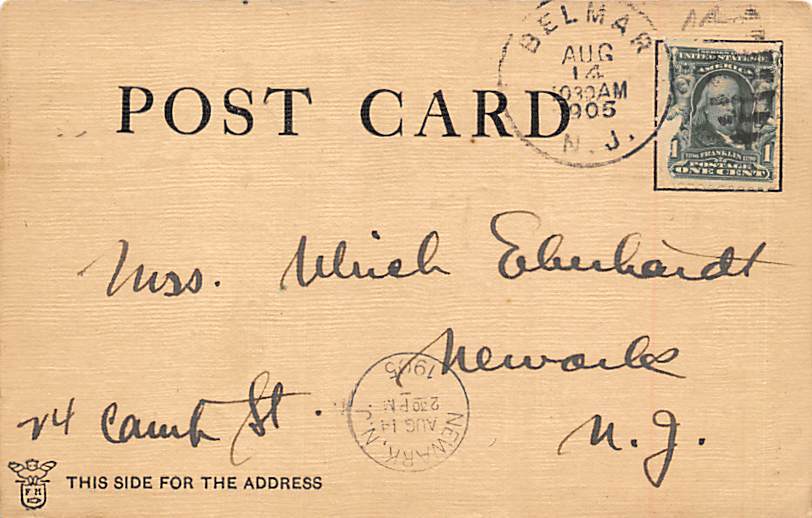 BELMAR
AUG
14
1030AM
1905
N. J.
UNITED STATES OF
AMERICA
1 FRANKLIN 1
POSTAGE
ONE CENT
POST CARD
Mrs. Ulrich Eberhardt
Newark
24 Camp St.
N. J.
NEWARK, N.J.
AUG 14
230 PM
1905
F H
THIS SIDE FOR THE ADDRESS